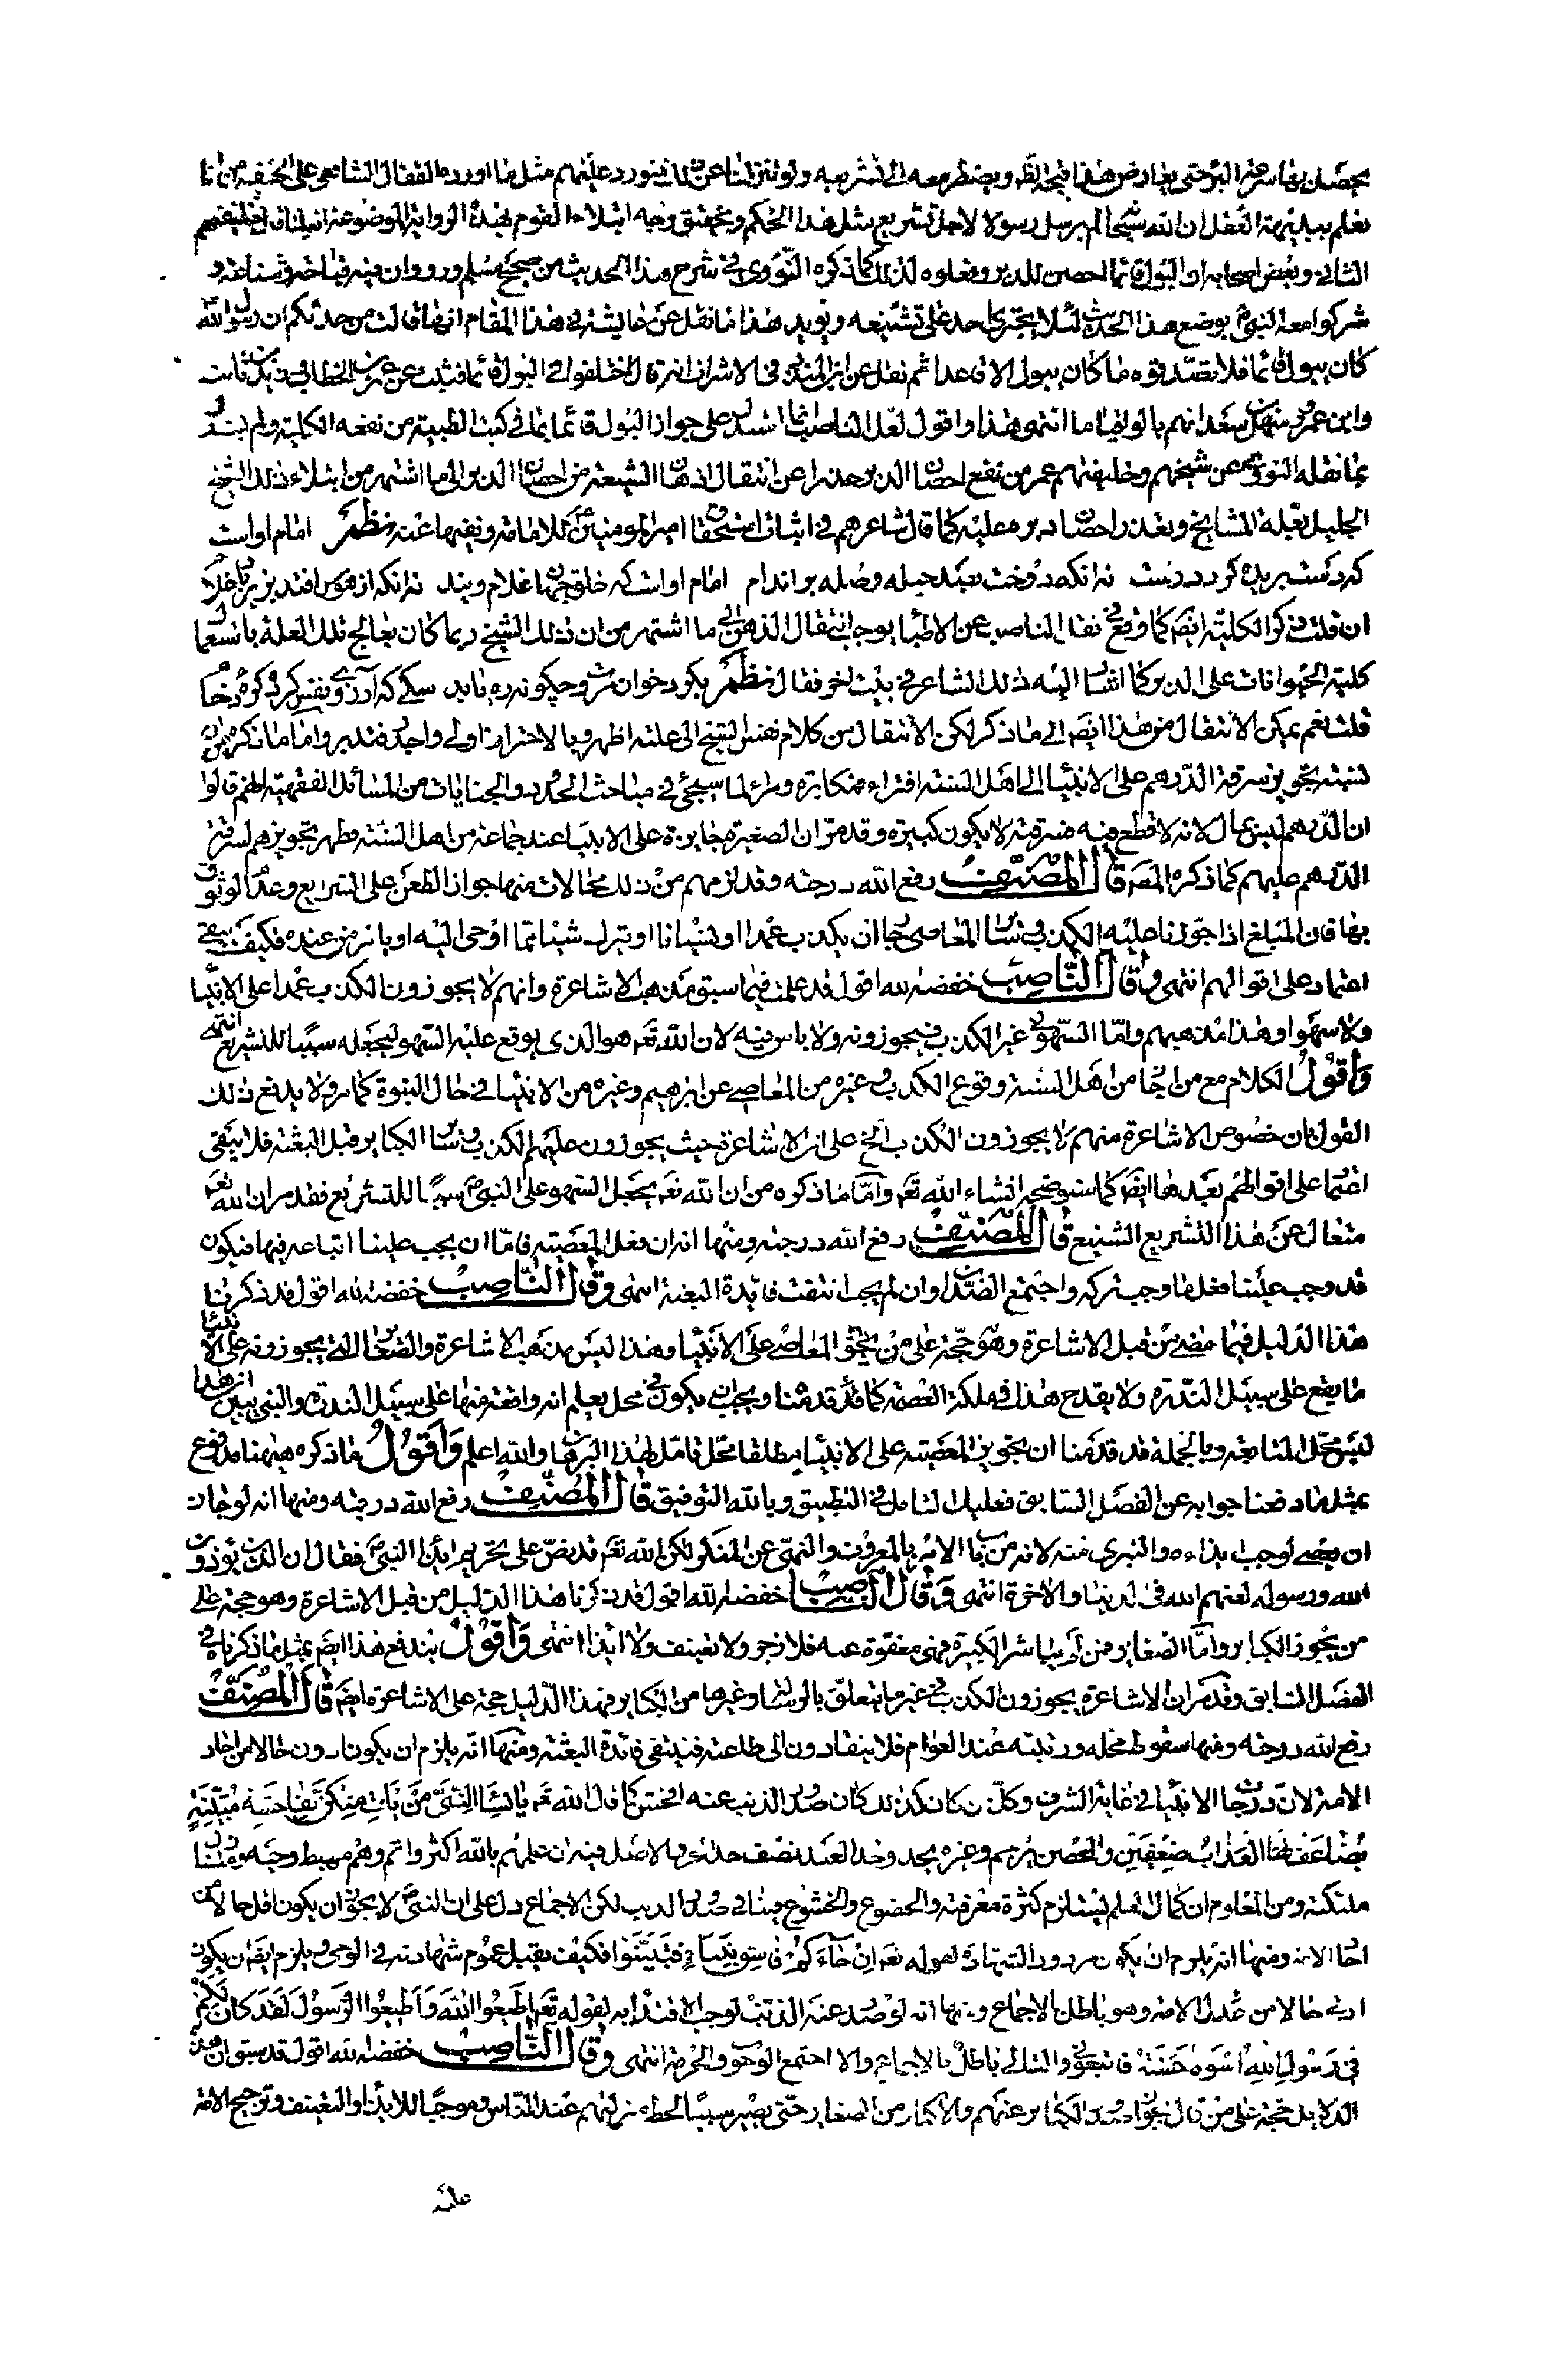 نعلم ببديهة العقل ان الله سبحانه لم يرسل رسولا لاجل تشريع مثل هذا الحكم وتحقيق وجه ابتلاء القوم لهذه الرواية الموضوعة
الثاني وبعض اصحابه ان البول قائما احصن للدبر وفعلوه لذلك كما ذكره النووي في شرح هذا الحديث من صحيح مسلم ورووا ان فيه قباحة وشناعة و
شركوا معه النبي ص بوضع هذا الحديث لئلا يجتري احد على تشنيعه ويؤيد هذا ما نقل عن عايشة في هذا المقام انها قالت من حدثكم ان رسول الله
كان يبول قائما فلا تصدقوه ما كان يبول الا قاعدا ثم نقل عن ابن المنذر في الاشراف انه قال اختلفوا في البول قائما فثبت عن عمر بن الخطاب وزيد بن ثابت
وابن عمر وسهل بن سعد انهم بالوا قياما انتهى هذا واقول لعل الناصب انما استدل على جواز البول قائما بما في كتب الطبية من نفعه الكلية ولم يستدل
بما نقله النووي عن شيخهم وخليفتهم عمر من نفع احصان الدبر حذرا عن انتقال اذهان الشيعة من احصان الدبر الى ما اشتهر من ابتلاء ذلك الشيخ
الجليل بعلة المشايخ وتعذر احصان دبره عليه كما قال شاعرهم في اثبات استحقاق امير المومنين ع للامامة ونفيها عنه نظم امام اوست
ان قلت ذكر الكلية ايضا كما وقع في نقل الناصب عن الاطبا يوجب انتقال الذهن الى ما اشتهر من ان ذلك الشيخ ربما كان يعالج تلك العلة باستعمال
كلية الحيوانات على الدبر كما اشار اليه ذلك الشاعر في بيت اخر فقال نظم
قلت نعم يمكن الانتقال من هذا ايضا الى ما ذكر لكن الانتقال من كلام نفس الشيخ الى علته اظهر وبالاحتراز اولى واجدر فتدبر واما ما ذكره من ان
نسبة تجويز سرقة الدرهم على الانبياء الى اهل السنة افتراء فمكابرة ومراء لما سيجئ في مباحث الحدود والجنايات من المسائل الفقهية انهم قالوا
ان الدرهم ليس بمال لانه لا قطع فيه فسرقته لا يكون كبيرة وقد مر ان الصغيرة جايزة على الانبياء عند جماعة من اهل السنة فظهر تجويزهم لسرقة
الدرهم عليهم كما ذكره المصـ قال المصنف رفع الله درجته وقد لزمهم من ذلك محالات منها جواز الطعن على الشرايع وعدم الوثوق
بها فان المبلغ اذا جوزنا عليه الكذب وسائر المعاصي جاز ان يكذب عمدا او نسيانا او يترك شيئا مما اوحى اليه او يامر من عنده فكيف يبقى
اعتماد على اقوالهم انتهى وقال الناصب خفضه الله اقول قد علمت فيما سبق مذهب الاشاعرة وانهم لا يجوزون الكذب عمدا على الانبياء
ولا سهوا وهذا مذهبهم واما السهو في غير الكذب فيجوزونه ولا باس فيه لان الله تعـ هو الذي يوقع عليه السهو ليجعله سببا للتشريع انتهى
واقول الكلام مع من اجاز من اهل السنة وقوع الكذب وغيره من المعاصي عن ابرهيم وغيره من الانبياء في حال النبوة كما مر ولا يدفع ذلك
القول بان خصوص الاشاعرة منهم لا يجوزون الكذب الخ على ان الاشاعرة حيث يجوزون عليهم الكذب وسائر الكباير قبل البعثة فلا يبقى
اعتماد على اقوالهم بعدها ايضا كما سنوضحه انشاء الله تعـ واما ما ذكره من ان الله تعـ يجعل السهو على النبي ص سببا للتشريع فقد مر ان الله تعـ
متعال عن هذا التشريع الشنيع قال المصنف رفع الله درجته ومنها انه ان فعل المعصية فاما ان يجب علينا اتباعه فيها فيكون
قد وجب علينا فعل ما وجب تركه واجتمع الضدان وان لم يجب انتفت فايدة البعثة انتهى وقال الناصب خفضه الله اقول قد ذكرنا
هذا الدليل فيما مضى من قبل الاشاعرة وهو حجة على من يجوز المعاصي على الانبياء وهذا ليس مذهب الاشاعرة والصغاير التي يجوزونه على الانبياء
ما يقع على سبيل الندرة ولا يقدح هذا في ملكة العصمة كما قد قدمنا ويجب ان يكون في محل يعلم انه واقعة منها على سبيل الندرة والنبي يبين ان هذا
ليس محل المتابعة وبالجملة قد قدمنا ان تجويز المعصية على الانبياء مطلقا محل تامل لهذا البرهان والله اعلم واقول ما ذكره هيهنا مدفوع
بمثل ما دفعنا جوابه عن الفصل السابق فعليك التامل في التطبيق وبالله التوفيق قال المصنف رفع الله درجته ومنها انه لو جاز
ان يعصي لوجب ايذاءه والتبري منه لانه من باب الامر بالمعروف والنهي عن المنكر لكن الله تعـ قد نص على تحريم ايذاء النبي ص فقال ان الذين يؤذون
الله ورسوله لعنهم الله في الدنيا والاخرة انتهى وقال الناصب خفضه الله اقول قد ذكرنا هذا الدليل من قبل الاشاعرة وهو حجة على
من يجوز الكباير واما الصغاير فمن لم يباشر الكبيرة فهي معفوة عنه فلا زجر ولا تعنيف ولا ايذاء انتهى واقول يندفع هذا ايضا بمثل ما ذكرناه في
الفصل السابق وقد مر ان الاشاعرة يجوزون الكذب في غير ما يتعلق بالرسالة وغيرها من الكباير فهذا الدليل حجة على الاشاعرة ايضا قال المصنف
رفع الله درجته ومنها سقوط محله ورتبته عند العوام فلا ينقادون الى طاعته فينتفي فائدة البعثة ومنها انه يلزم ان يكونا دون حالا من احاد
الامة لان درجات الانبياء في غاية الشرف وكل من كان كذلك كان صدور الذنب عنه افحش كما قال الله تعـ يا نساء النبي من يات منكن بفاحشة مبينة
يضاعف لها العذاب ضعفين والمحصن يرجم وغيره يحد وحد العبد نصف حد الحر والاصل فيه ان علمهم بالله اكثر واتم وهم مهبط وحيه ومنازل
ملئكته ومن المعلوم ان كمال العلم يستلزم كثرة معرفته والخضوع والخشوع فينافي صدور الذنب لكن الاجماع دل على ان النبي ص لا يجوز ان يكون اقل حالا من
احاد الامة ومنها انه يلزم ان يكون مردود الشهادة لقوله تعـ ان جاءكم فاسق بنبأ فتبينوا فكيف يقبل عموم شهادته في الوحي ويلزم ايضا ان يكون
ادنى حالا من عدول الامة وهو باطل بالاجماع ومنها انه لو صدر عنه الذنب لوجب الاقتداء به لقوله تعـ اطيعوا الله واطيعوا الرسول لقد كان لكم
في رسول الله اسوة حسنة فاتبعوني والتالي باطل بالاجماع والا اجتمع الوجوب والحرمة انتهى وقال الناصب خفضه الله اقول قد سبق ان هذه
الدلايل حجة على من قال بجواز صدور الكباير عنهم والاكثار من الصغاير حتى يصير سببا لحط منزلتهم عند الناس وموجبا للايذاء والتعنيف وترجيح الامة
عليه